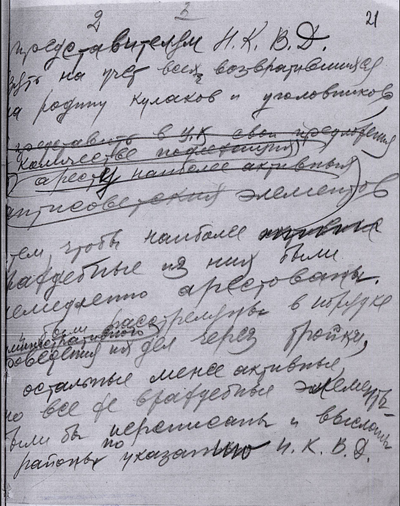 2 2 21
представителям Н.К.В.Д.
взять на учет всех возвратившихся
на родину кулаков и уголовников
представить в Ц.К. свои предложения
количестве подлежащих
аресту наиболее активных
антисоветских элементов
тем, чтобы наиболее
враждебные из них были
немедленно арестованы
были расстреляны в порядке
административного
проведения их дел через тройки,
остальные менее активные,
но все же враждебные элементы
были бы переписаны и высланы
районы по указанию Н.К.В.Д.